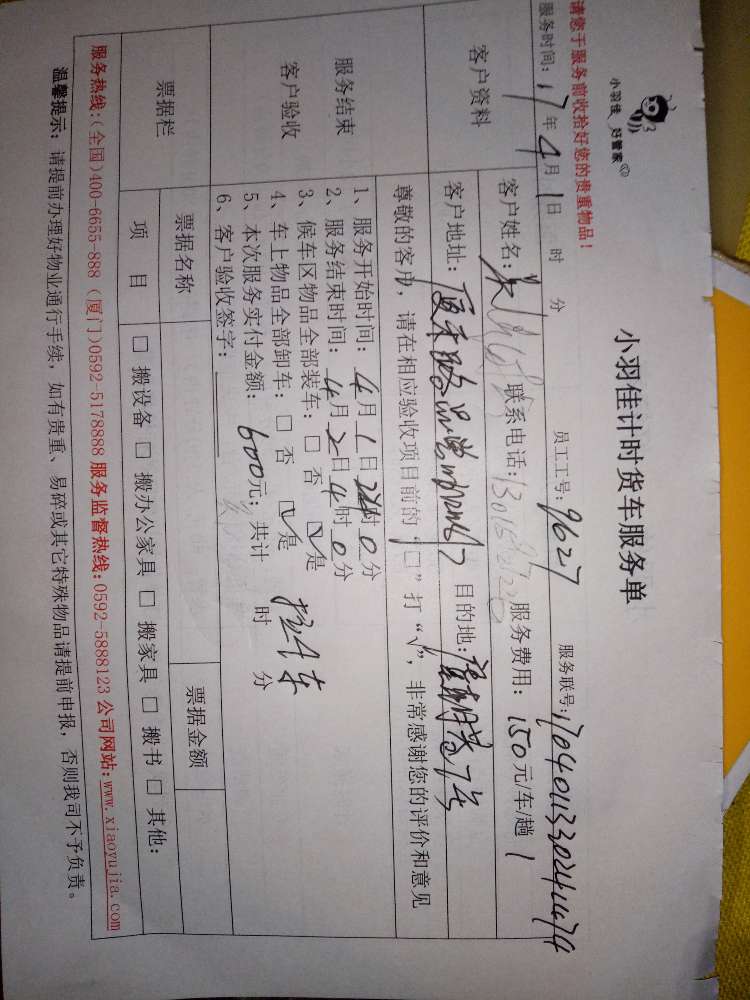 小羽佳 好管家
小羽佳计时货车服务单
请您于服务前收拾好您的贵重物品！
服务时间：17年4月1日 时 分 员工工号：9627 服务联号：
客户资料
客户姓名： 联系电话： 服务费用：150元/车/趟
客户地址： 目的地：
服务结束
客户验收
尊敬的客户，请在相应验收项目前的“□”打“√”，非常感谢您的评价和意见
1、服务开始时间：4月1日 时0分
2、服务结束时间：4月2日4时0分
3、候车区物品全部装车：□否 ☑是
4、车上物品全部卸车：□否 ☑是
5、本次服务实付金额：600元；共计 时 分
6、客户验收签字：
票据栏
票据名称 票据金额
项 目 □ 搬设备 □ 搬办公家具 □ 搬家具 □ 搬书 □ 其他：
服务热线：(全国)400-6655-888 (厦门)0592-5178888 服务监督热线：0592-5888123 公司网站：www.xiaoyujia.com
温馨提示：请提前办理好物业通行手续，如有贵重、易碎或其它特殊物品请提前申报，否则我司不予负责。